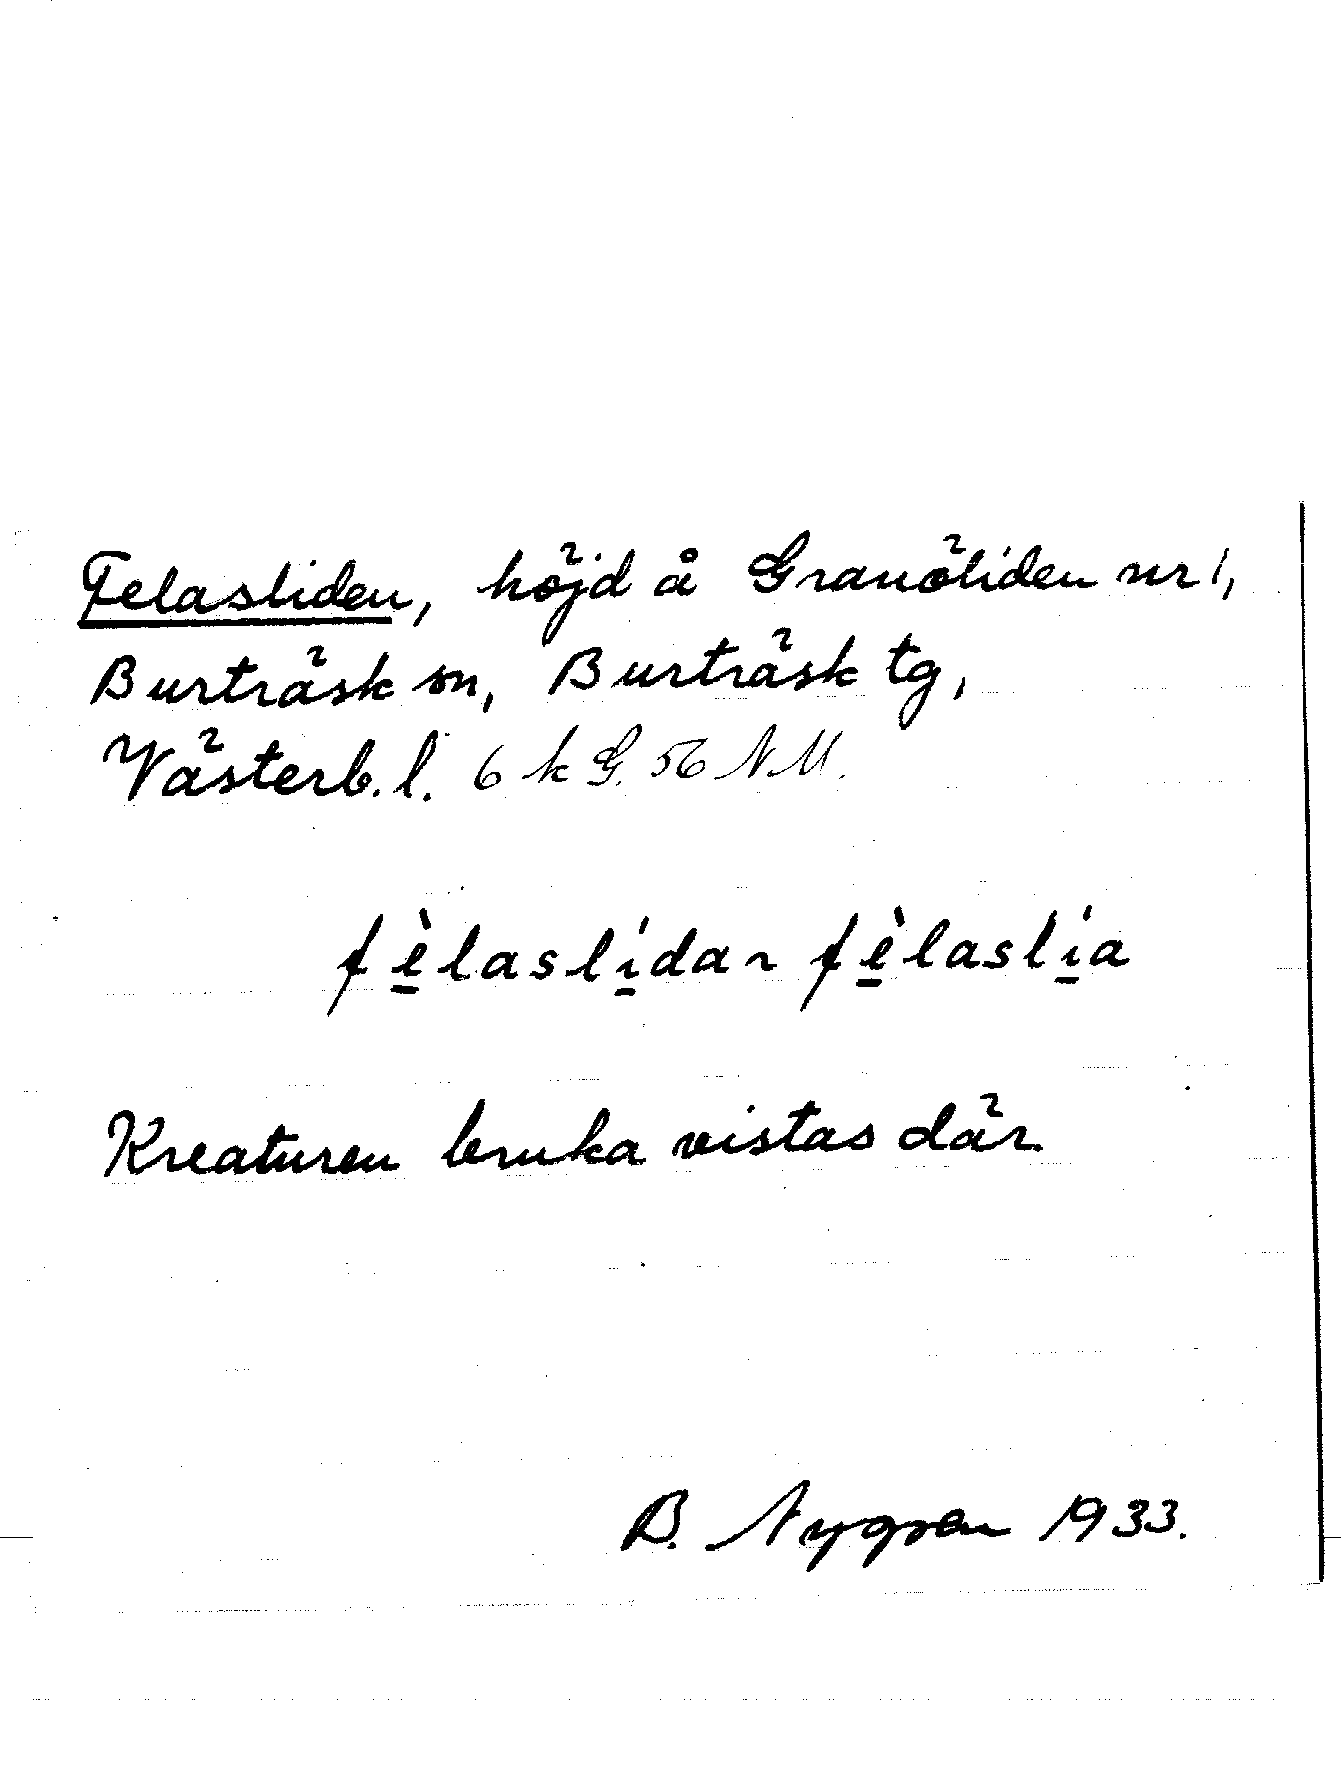 Felasliden, höjd å Granöliden nr 1,
Burträsk sn, Burträsk tg,
Västerb. l. 6 k G. 56 N M.
fè̲laslí̲dar fè̲laslí̲a
Kreaturen bruka vistas där.
B. Nygren 1933.